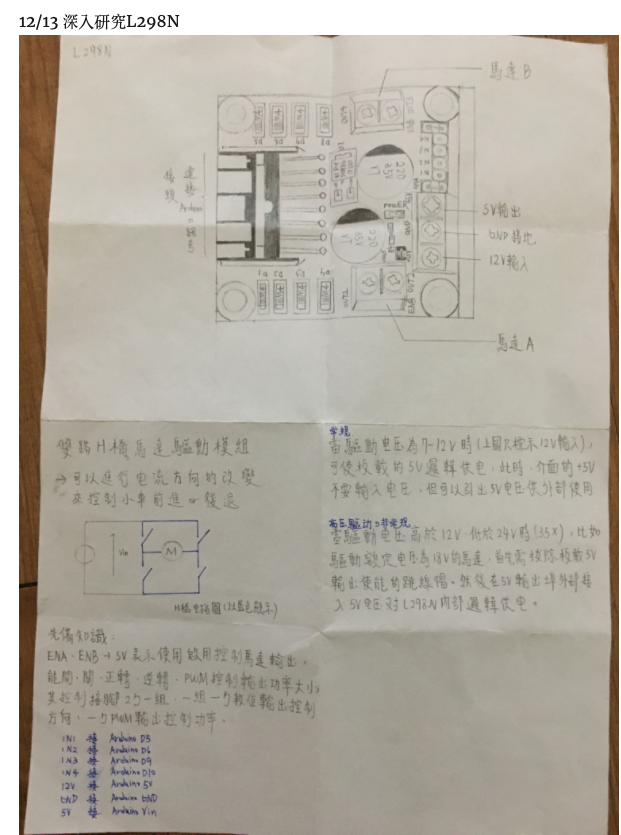 12/13 深入研究L298N
L298N
馬達B
5V輸出
GND接地
12V輸入
馬達A
連接Arduino訊號
接頭
OUT4
OUT3
ENB
220
35V
VT
220
35V
VT
POWER
GND
OUT1
OUT2
ENA
雙路H橋馬達驅動模組
→可以進行电流方向的改變
來控制小車前進or後退
Vin
M
H橋电路圖(以藍色顯示)
常規
當驅動电压為7~12V時(上圖只標示12V輸入),
可使板載的5V邏輯供电,此時,介面的+5V
不要輸入电压,但可以引出5V电压供外部使用
高压驅动=非常規
當驅動电压高於12V,低於24V時(35X),比如
驅動額定电压為18V的馬達,首先需拔除板載5V
輸出使能的跳線帽。然後在5V輸出埠外部接
入5V电压对L298N内部邏輯供电。
先備知識:
ENA、ENB→5V表示使用啟用控制馬達輸出,
能開、關、正轉、逆轉、PWM控制輸出功率大小,
其控制接腳2个一組,一組一个数位輸出控制
方向,一个PWM輸出控制功率。
IN1 接 Arduino D5
IN2 接 Arduino D6
IN3 接 Arduino D9
IN4 接 Arduino D10
12V 接 Arduino 5V
GND 接 Arduino GND
5V 接 Arduino Vin